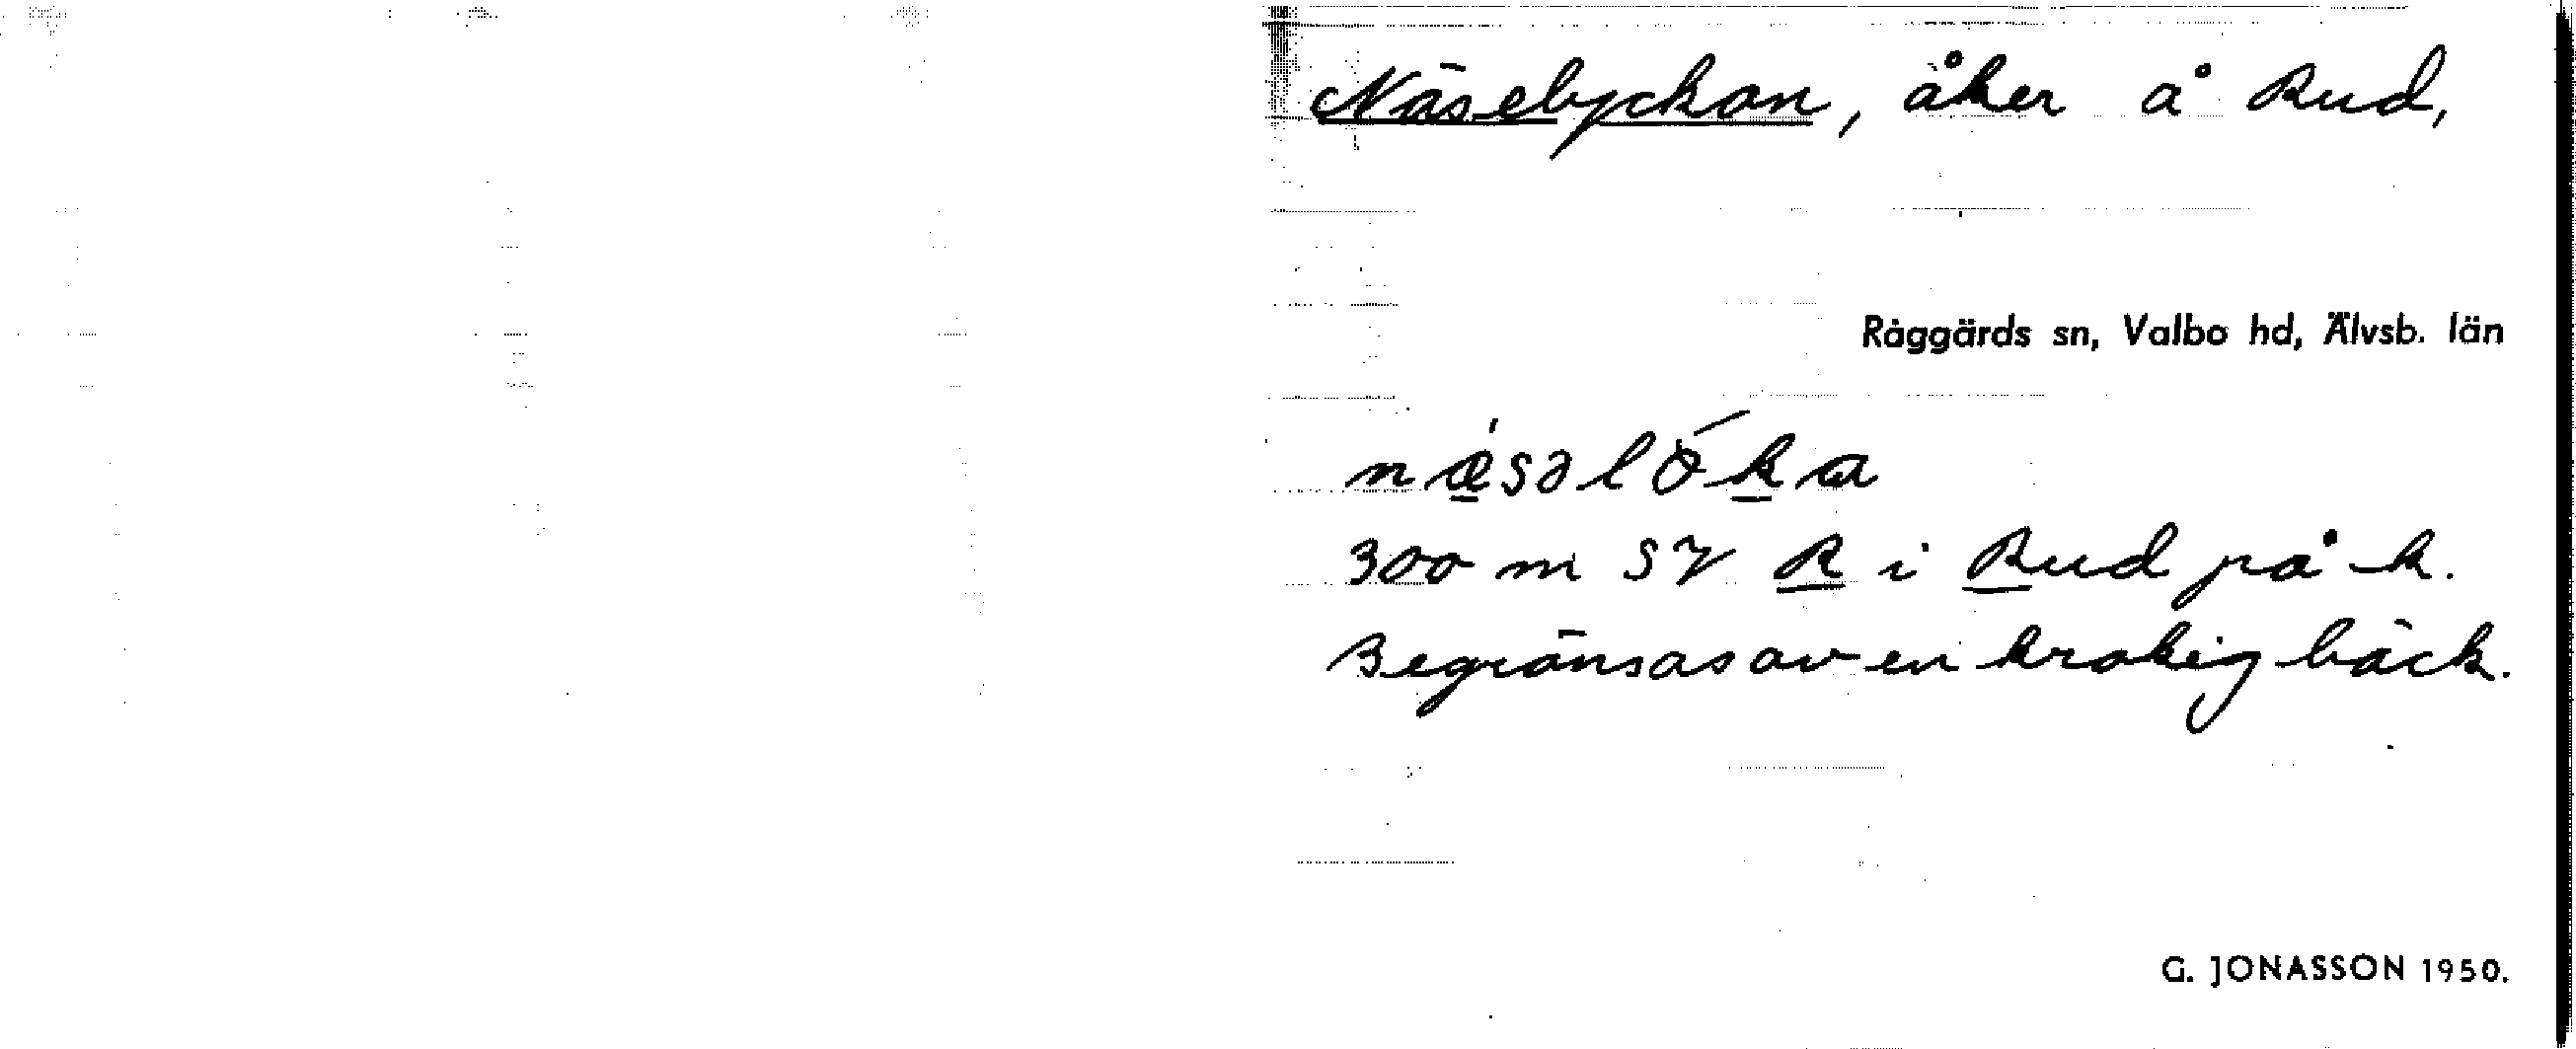 Näselyckan, åker å Rud,
Råggärds sn, Valbo hd, Älvsb. län
næ̀səlöka
300 m SV R i Rud på k.
Begränsas av en krokig bäck.
G. JONASSON 1950.